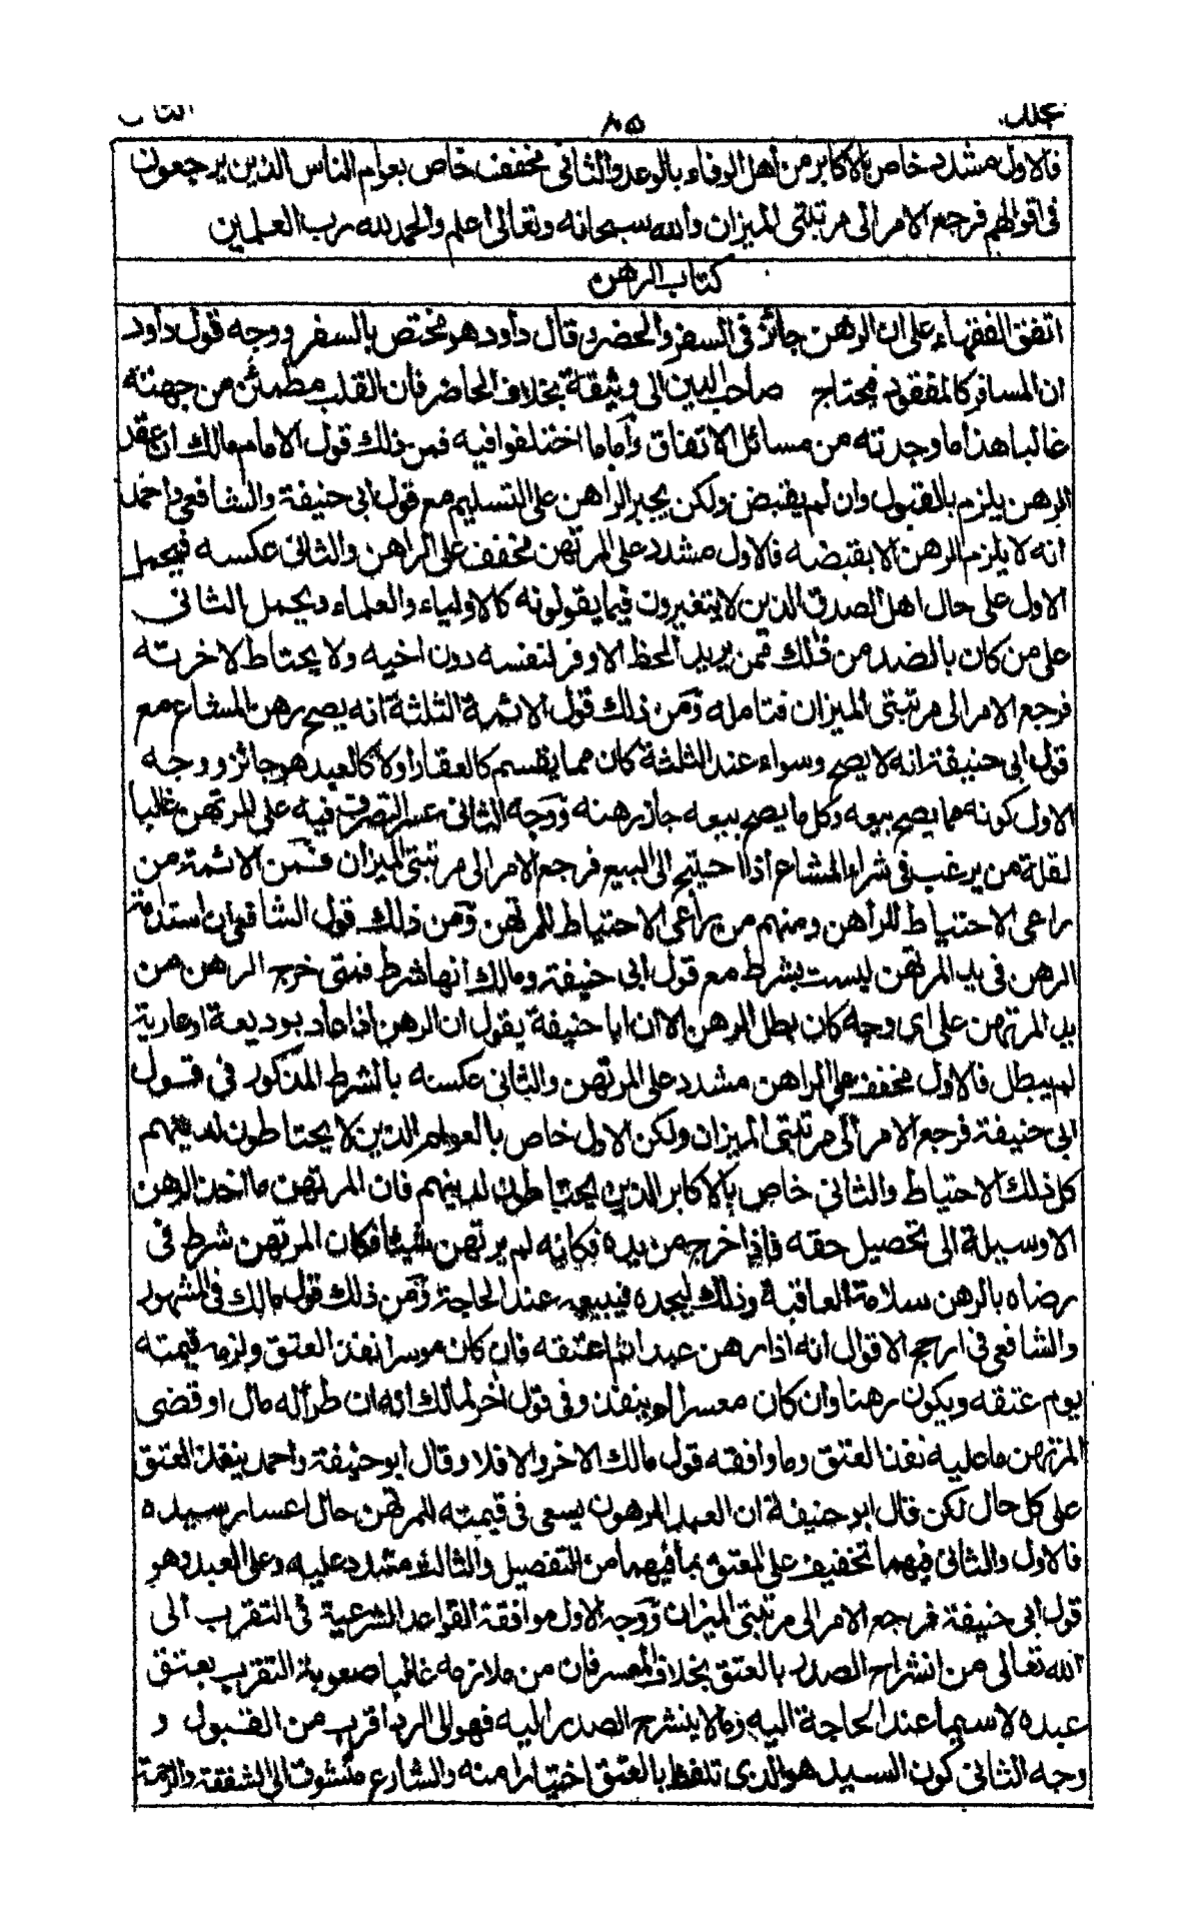 ٨٥
فالاول مشدد خاص بالاكابر من أهل الوفاء بالوعد والثانى مخفف خاص بعوام الناس الذين يرجعون
فى اقوالهم فرجع الامر الى مرتبتى الميزان والله سبحانه وتعالى اعلم والحمد لله رب العلمين
كتاب الرهن
اتفق الفقهاء على ان الرهن جائز فى السفر والحضر وقال داود هو مختص بالسفر ووجه قول داود
ان المسافر كالمفقود فيحتاج صاحب الدين الى وثيقة بخلاف الحاضر فان القلب مطمئن من جهته
غالبا هذا ما وجدته من مسائل الاتفاق وأما ما اختلفوا فيه فمن ذلك قول الامام مالك ان عقد
الرهن يلزم بالقبول وان لم يقبض ولكن يجبر الراهن على التسليم مع قول ابى حنيفة والشافعى واحمد
انه لا يلزم الرهن الا بقبضه فالاول مشدد على المرتهن مخفف على الراهن والثانى عكسه فيحمل
الاول على حال اهل الصدق الذين لا يتغيرون فيما يقولونه كالاولياء والعلماء ويحمل الثانى
على من كان بالضد من ذلك فمن يريد الحظ الاوفر لنفسه دون اخيه ولا يحتاط لاخرته
فرجع الامر الى مرتبتى الميزان فتامله ومن ذلك قول الائمة الثلثة انه يصح رهن المشاع مع
قول ابى حنيفة انه لا يصح وسواء عند الثلثة كان مما يقسم كالعقار أولا كالعبد هو جائز ووجه
الاول كونه مما يصح بيعه وكل ما يصح بيعه جاز رهنه ووجه الثانى عسر التصرف فيه على المرتهن غالبا
لقلة من يرغب فى شراء المشاع اذا احتيج الى البيع فرجع الامر الى مرتبتى الميزان فمن الائمة من
راعى الاحتياط للراهن ومنهم من يراعى الاحتياط للمرتهن ومن ذلك قول الشافعى ان استدامة
الرهن فى يد المرتهن ليست بشرط مع قول ابى حنيفة ومالك انها شرط فمتى خرج الرهن من
يد المرتهن على اى وجه كان بطل الرهن الا ان ابا حنيفة يقول ان الرهن اذا عاد بوديعة او عارية
لم يبطل فالاول مخفف على الراهن مشدد على المرتهن والثانى عكسه بالشرط المذكور فى قول
ابى حنيفة فرجع الامر الى مرتبتى الميزان ولكن الاول خاص بالعوام الذين لا يحتاطون لدينهم
كل ذلك الاحتياط والثانى خاص بالاكابر الذين يحتاطون لدينهم فان المرتهن ما اخذ الرهن
الا وسيلة الى تحصيل حقه فاذا خرج من يده فكانه لم يرتهن شيئا فكان المرتهن شرط فى
رضاه بالرهن سلامة العاقبة وذلك ليجده فيبيعه عند الحاجة ومن ذلك قول مالك فى المشهور
والشافعى فى ارجح الاقوال انه اذا رهن عبدا ثم اعتقه فان كان موسرا نفذ العتق ولزمه قيمته
يوم عتقه ويكون رهنا وان كان معسرا لم ينفذ وفى قول أخر لمالك انه ان طرأ له مال او قضى
المرتهن ما عليه نفذ العتق وما وافقه قول مالك الاخر والا فلا وقال ابو حنيفة واحمد ينفذ العتق
على كل حال لكن قال ابو حنيفة ان العبد المرهون يسعى فى قيمته للمرتهن حال اعسار سيده
فالاول والثانى فيهما تخفيف على المعتق بما فيهما من التفصيل والثالث مشدد عليه وعلى العبد وهو
قول ابى حنيفة فرجع الامر الى مرتبتى الميزان ووجه الاول موافقة القواعد الشرعية فى التقرب الى
الله تعالى من انشراح الصدر بالعتق بخلاف المعسر فان من ملازمه غالبا صعوبة التقرب بعتق
عبده لا سيما عند الحاجة اليه وما لا ينشرح الصدر اليه فهو الى الرد اقرب من القبول و
وجه الثانى كون السيد هو الذى تلفظ بالعتق اختيارا منه والشارع متشوق الى الشفقة والرحمة